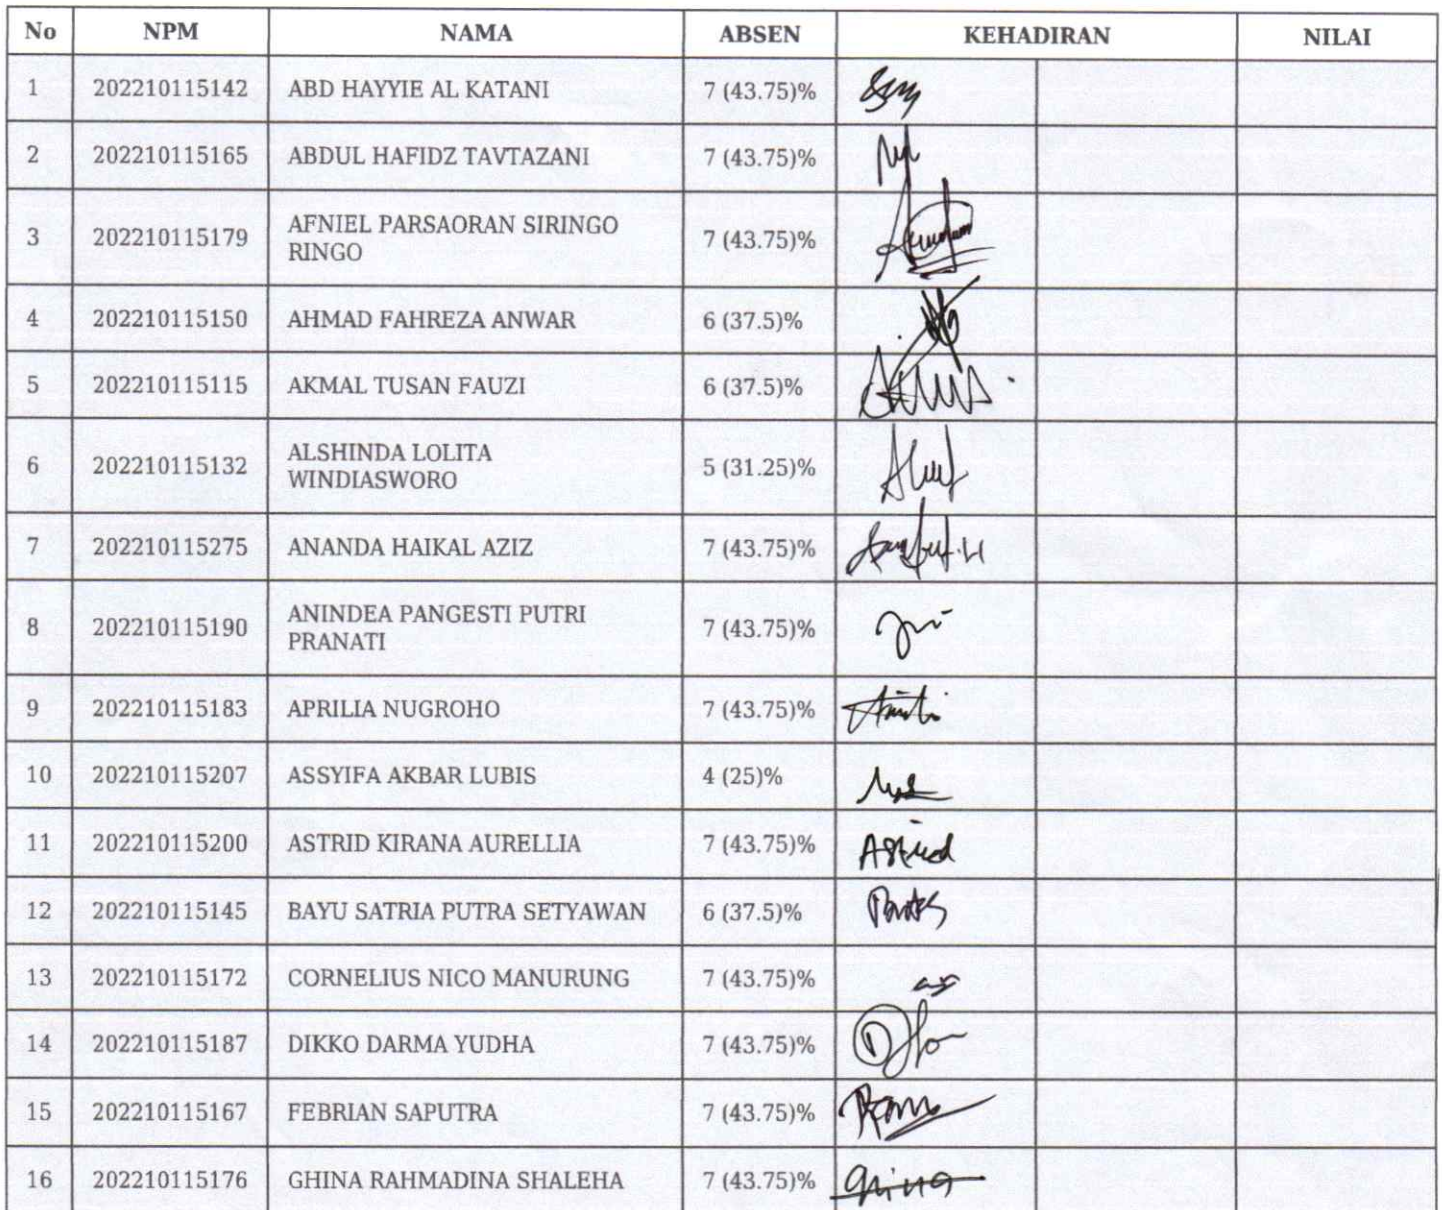 No NPM NAMA ABSEN KEHADIRAN NILAI
1 202210115142 ABD HAYYIE AL KATANI 7 (43.75)%
2 202210115165 ABDUL HAFIDZ TAVTAZANI 7 (43.75)%
3 202210115179 AFNIEL PARSAORAN SIRINGO RINGO 7 (43.75)%
4 202210115150 AHMAD FAHREZA ANWAR 6 (37.5)%
5 202210115115 AKMAL TUSAN FAUZI 6 (37.5)%
6 202210115132 ALSHINDA LOLITA WINDIASWORO 5 (31.25)%
7 202210115275 ANANDA HAIKAL AZIZ 7 (43.75)%
8 202210115190 ANINDEA PANGESTI PUTRI PRANATI 7 (43.75)%
9 202210115183 APRILIA NUGROHO 7 (43.75)%
10 202210115207 ASSYIFA AKBAR LUBIS 4 (25)%
11 202210115200 ASTRID KIRANA AURELLIA 7 (43.75)% Astrid
12 202210115145 BAYU SATRIA PUTRA SETYAWAN 6 (37.5)%
13 202210115172 CORNELIUS NICO MANURUNG 7 (43.75)%
14 202210115187 DIKKO DARMA YUDHA 7 (43.75)%
15 202210115167 FEBRIAN SAPUTRA 7 (43.75)%
16 202210115176 GHINA RAHMADINA SHALEHA 7 (43.75)% Ghina